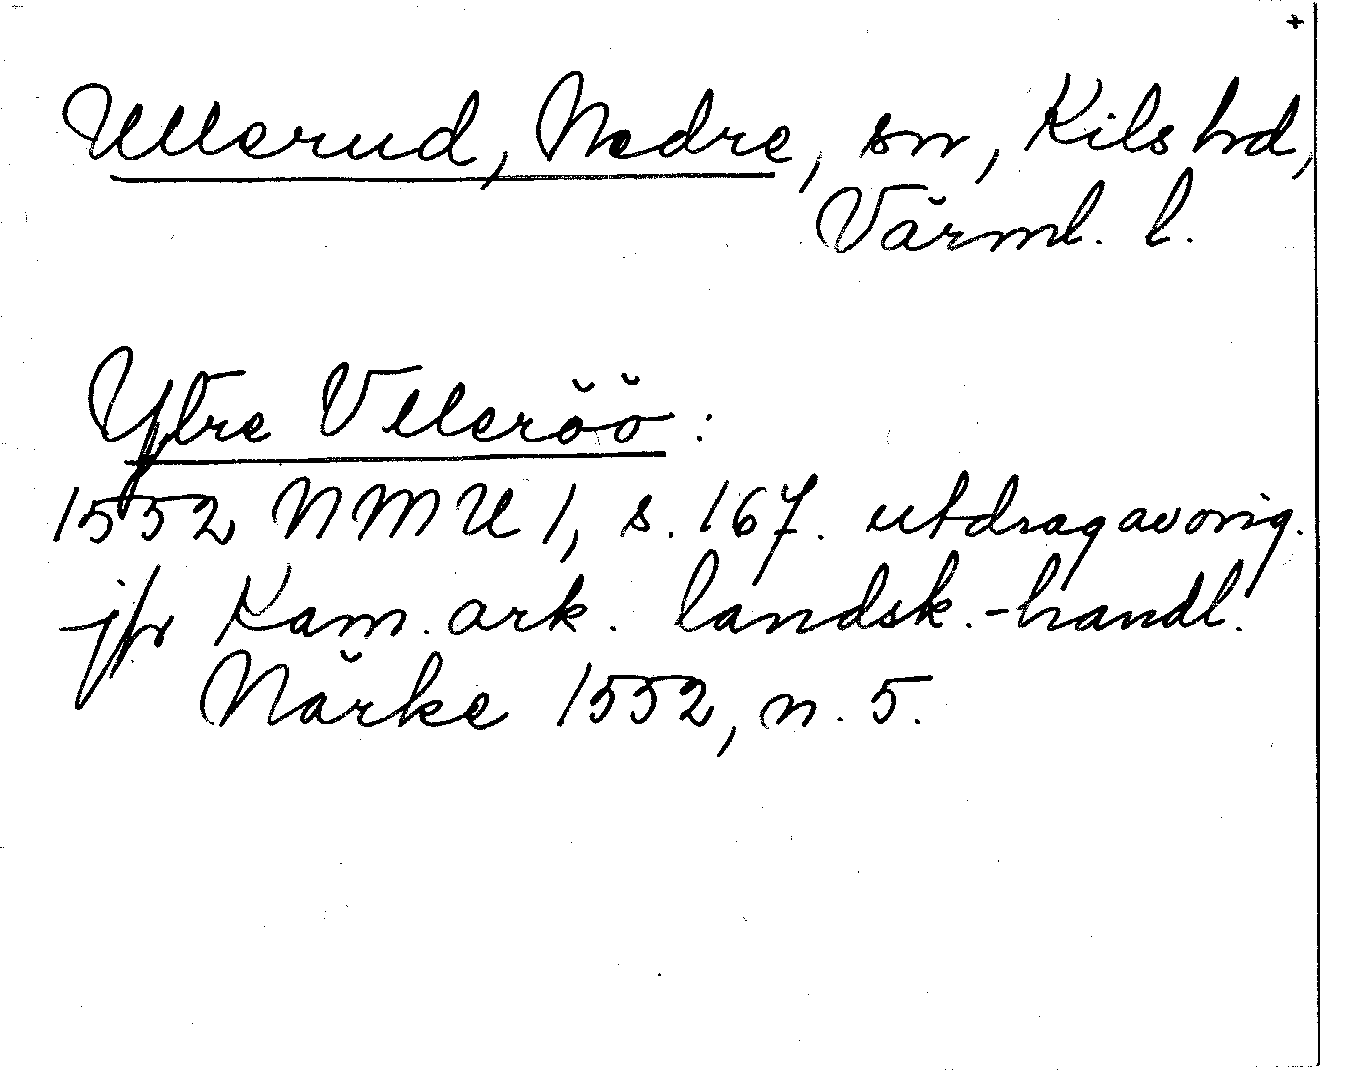 +
Ullerud, Nedre, sn, Kils hd,
Värml. l.
Yttre Vlleröö:
1552 NMU 1, s. 167. utdrag av orig.
jfr Kam. ark. landsk.-handl.
Närke 1552, n. 5.